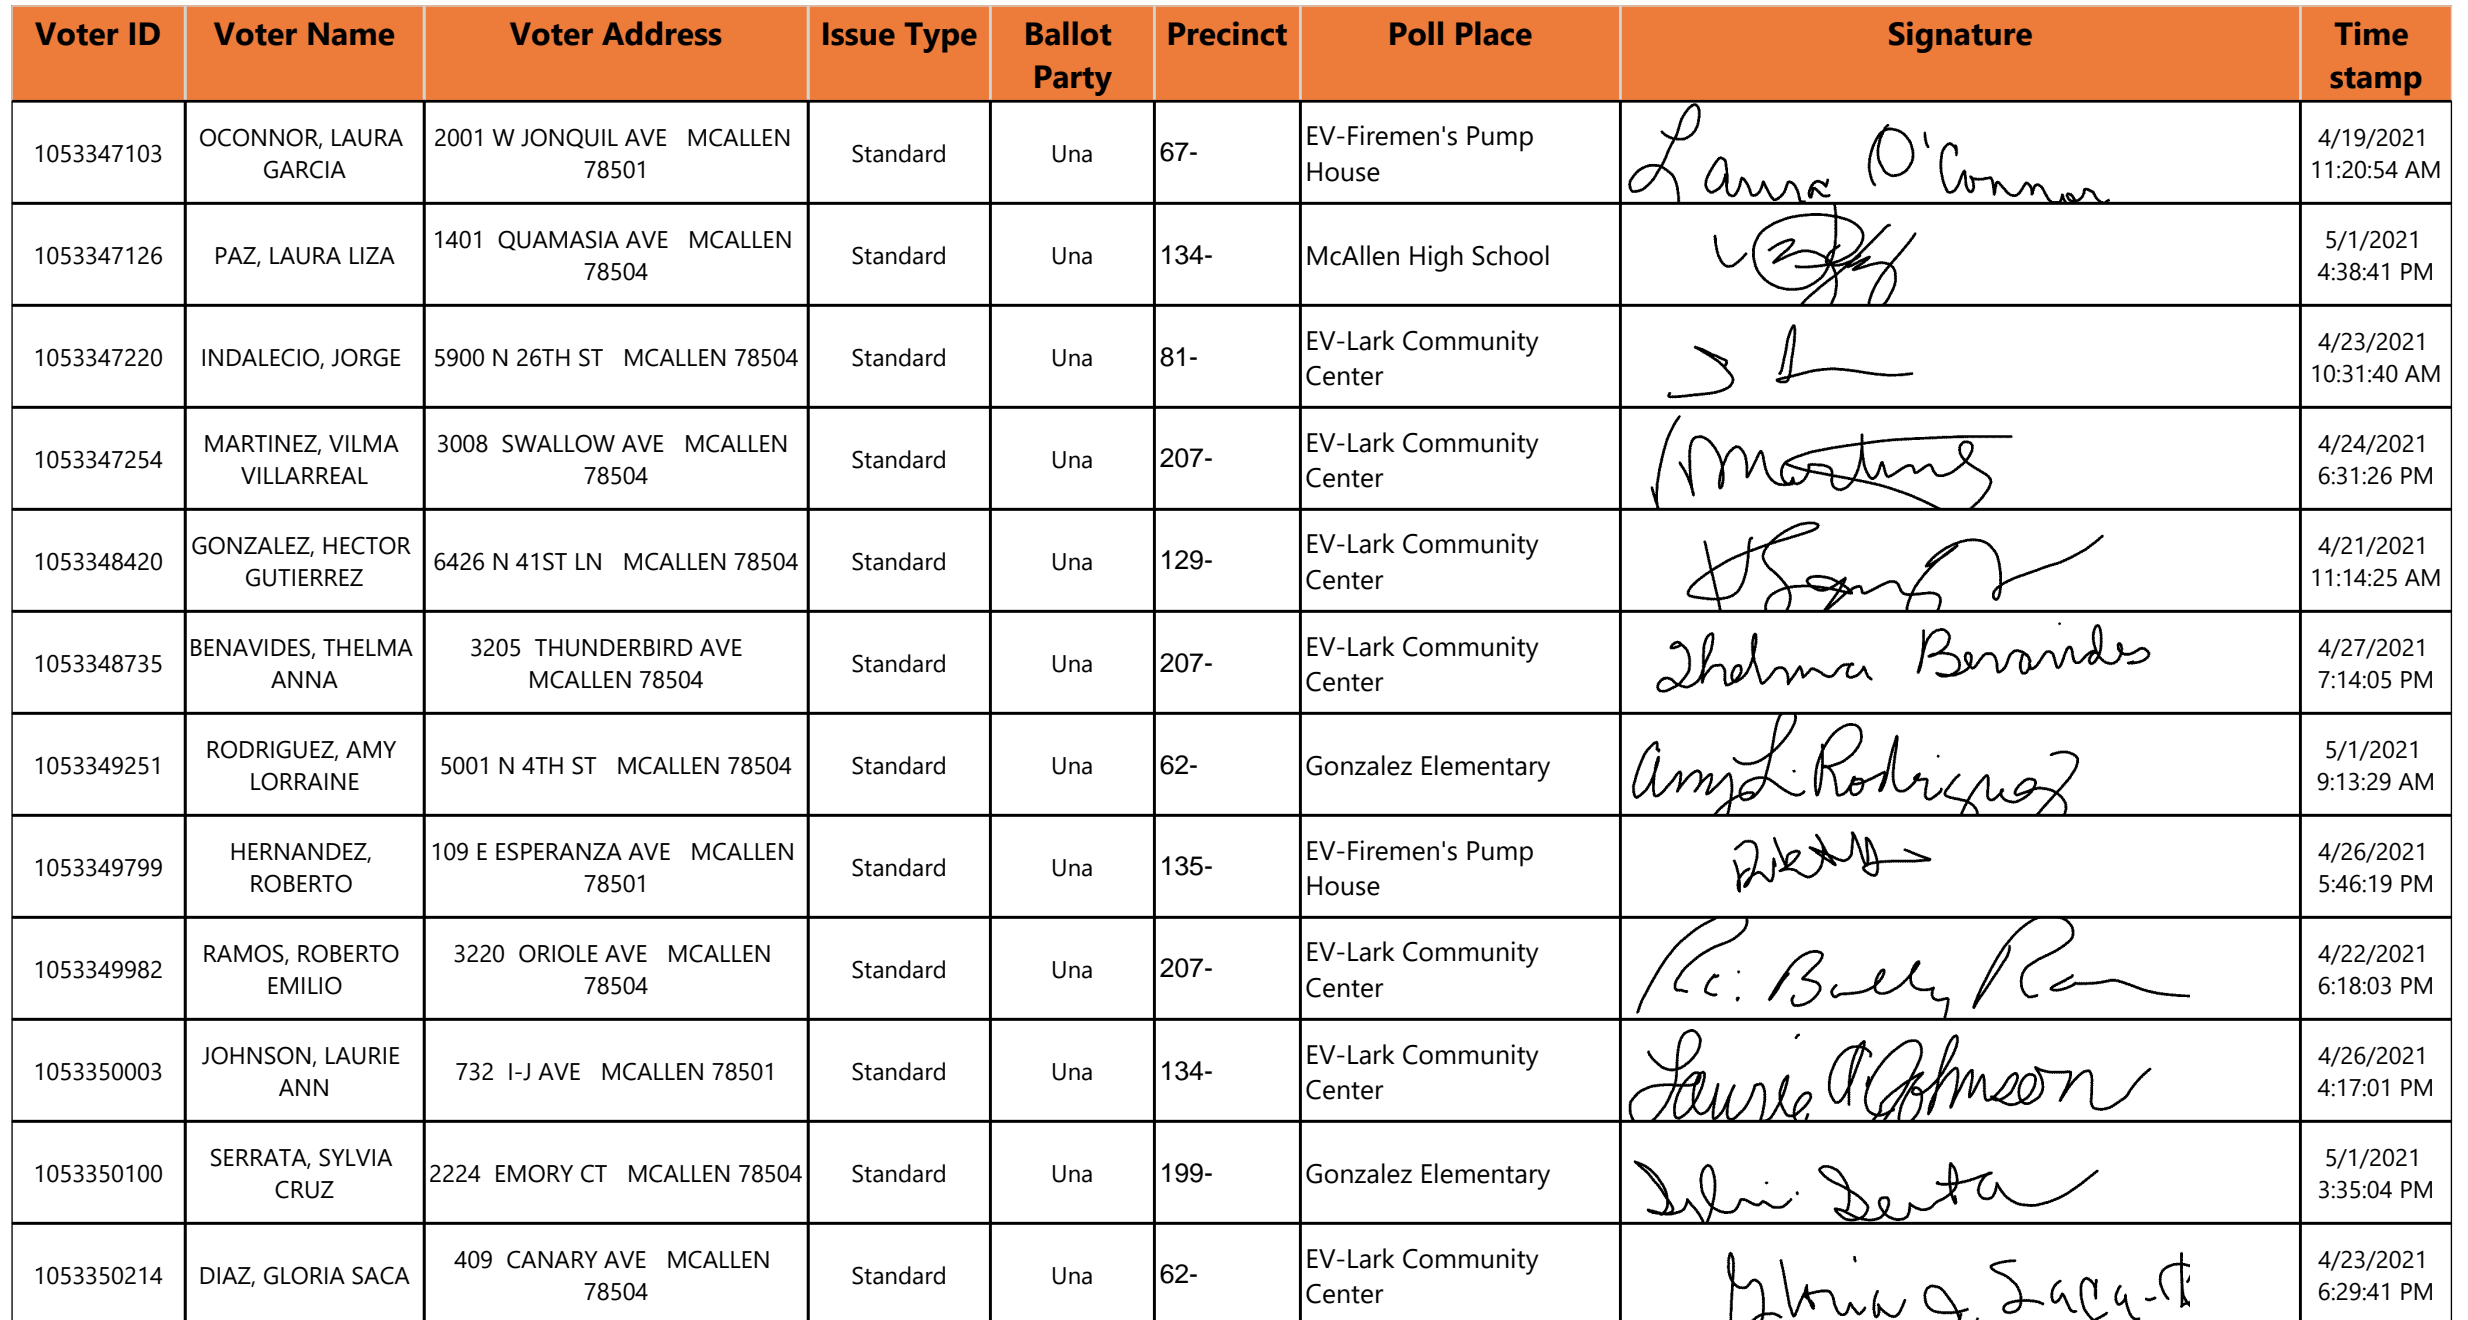 Voter ID Voter Name Voter Address Issue Type Ballot Party Precinct Poll Place Signature Time stamp
1053347103 OCONNOR, LAURA GARCIA 2001 W JONQUIL AVE MCALLEN 78501 Standard Una 67- EV-Firemen's Pump House Laura O'Connor 4/19/2021 11:20:54 AM
1053347126 PAZ, LAURA LIZA 1401 QUAMASIA AVE MCALLEN 78504 Standard Una 134- McAllen High School 5/1/2021 4:38:41 PM
1053347220 INDALECIO, JORGE 5900 N 26TH ST MCALLEN 78504 Standard Una 81- EV-Lark Community Center 4/23/2021 10:31:40 AM
1053347254 MARTINEZ, VILMA VILLARREAL 3008 SWALLOW AVE MCALLEN 78504 Standard Una 207- EV-Lark Community Center 4/24/2021 6:31:26 PM
1053348420 GONZALEZ, HECTOR GUTIERREZ 6426 N 41ST LN MCALLEN 78504 Standard Una 129- EV-Lark Community Center 4/21/2021 11:14:25 AM
1053348735 BENAVIDES, THELMA ANNA 3205 THUNDERBIRD AVE MCALLEN 78504 Standard Una 207- EV-Lark Community Center Thelma Benavides 4/27/2021 7:14:05 PM
1053349251 RODRIGUEZ, AMY LORRAINE 5001 N 4TH ST MCALLEN 78504 Standard Una 62- Gonzalez Elementary Amy L. Rodriguez 5/1/2021 9:13:29 AM
1053349799 HERNANDEZ, ROBERTO 109 E ESPERANZA AVE MCALLEN 78501 Standard Una 135- EV-Firemen's Pump House 4/26/2021 5:46:19 PM
1053349982 RAMOS, ROBERTO EMILIO 3220 ORIOLE AVE MCALLEN 78504 Standard Una 207- EV-Lark Community Center 4/22/2021 6:18:03 PM
1053350003 JOHNSON, LAURIE ANN 732 I-J AVE MCALLEN 78501 Standard Una 134- EV-Lark Community Center Laurie A Johnson 4/26/2021 4:17:01 PM
1053350100 SERRATA, SYLVIA CRUZ 2224 EMORY CT MCALLEN 78504 Standard Una 199- Gonzalez Elementary 5/1/2021 3:35:04 PM
1053350214 DIAZ, GLORIA SACA 409 CANARY AVE MCALLEN 78504 Standard Una 62- EV-Lark Community Center Gloria 4/23/2021 6:29:41 PM